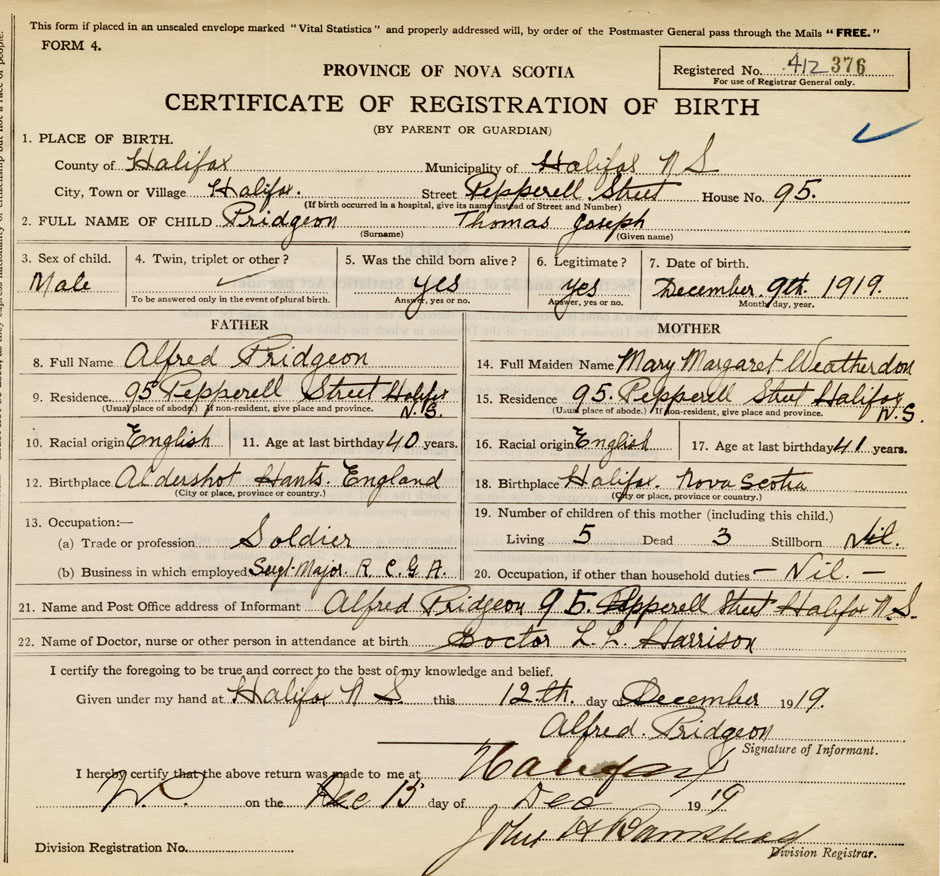 This form if placed in an unsealed envelope marked "Vital Statistics" and properly addressed will, by order of the Postmaster General pass through the Mails "FREE."
FORM 4.
Registered No. 412 376
For use of Registrar General only.
PROVINCE OF NOVA SCOTIA
CERTIFICATE OF REGISTRATION OF BIRTH
(BY PARENT OR GUARDIAN)
1. PLACE OF BIRTH.
County of Halifax Municipality of Halifax N S
City, Town or Village Halifax. Street Pepperell Street House No. 95.
(If birth occurred in a hospital, give its name instead of Street and Number)
2. FULL NAME OF CHILD Pridgeon Thomas Joseph
(Surname) (Given name)
3. Sex of child. 4. Twin, triplet or other? 5. Was the child born alive? 6. Legitimate? 7. Date of birth.
Male yes yes December. 9th. 1919.
To be answered only in the event of plural birth. Answer, yes or no. Answer, yes or no. Month, day, year.
FATHER
8. Full Name Alfred Pridgeon
9. Residence. 95 Pepperell Street Halifax N.S.
(Usual place of abode.) If non-resident, give place and province.
10. Racial origin English 11. Age at last birthday 40 years.
12. Birthplace Aldershot Hants. England
(City or place, province or country.)
13. Occupation:—
(a) Trade or profession Soldier
(b) Business in which employed Sergt-Major. R. C. G. A.
MOTHER
14. Full Maiden Name Mary Margaret Weatherdon
15. Residence 95. Pepperell Street Halifax N.S.
(Usual place of abode.) If non-resident, give place and province.
16. Racial origin English 17. Age at last birthday 41 years.
18. Birthplace Halifax. Nova Scotia
(City or place, province or country.)
19. Number of children of this mother (including this child.)
Living 5 Dead 3 Stillborn Nil.
20. Occupation, if other than household duties — Nil. —
21. Name and Post Office address of Informant Alfred Pridgeon 95. Pepperell Street Halifax N.S.
22. Name of Doctor, nurse or other person in attendance at birth Doctor L. L. Harrison
I certify the foregoing to be true and correct to the best of my knowledge and belief.
Given under my hand at Halifax N S this 12th. day of December 1919.
Alfred. Pridgeon
Signature of Informant.
I hereby certify that the above return was made to me at Halifax
on the Dec 15 day of Dec 1919
John H Barnstead
Division Registration No. Division Registrar.